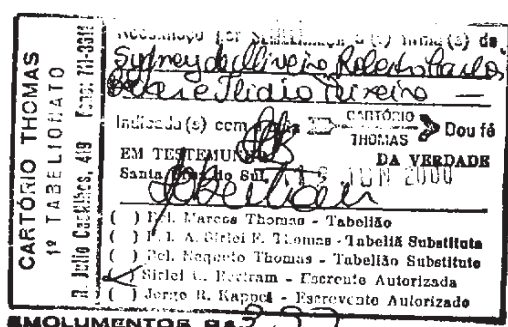 CARTÓRIO THOMAS
1º TABELIONATO
R. Julio Castilhos, 419 Fone: 711-3311
Reconheço por Semelhança a (s) firma (s) de
Sydney de Oliveira Roberto Carlos
e Ilidio
Indicada (s) com a CARTÓRIO THOMAS Dou fé
EM TESTEMUNHO DA VERDADE
Santa do Sul, JUN 2000
( ) Bel. Marcos Thomas - Tabelião
( ) A. Sirlei F. Thomas - Tabeliã Substituta
( ) Bel. Thomas - Tabelião Substituto
Sirlei Bertram - Escrevente Autorizada
( ) Jorge R. Kappel - Escrevente Autorizado
EMOLUMENTOS R$